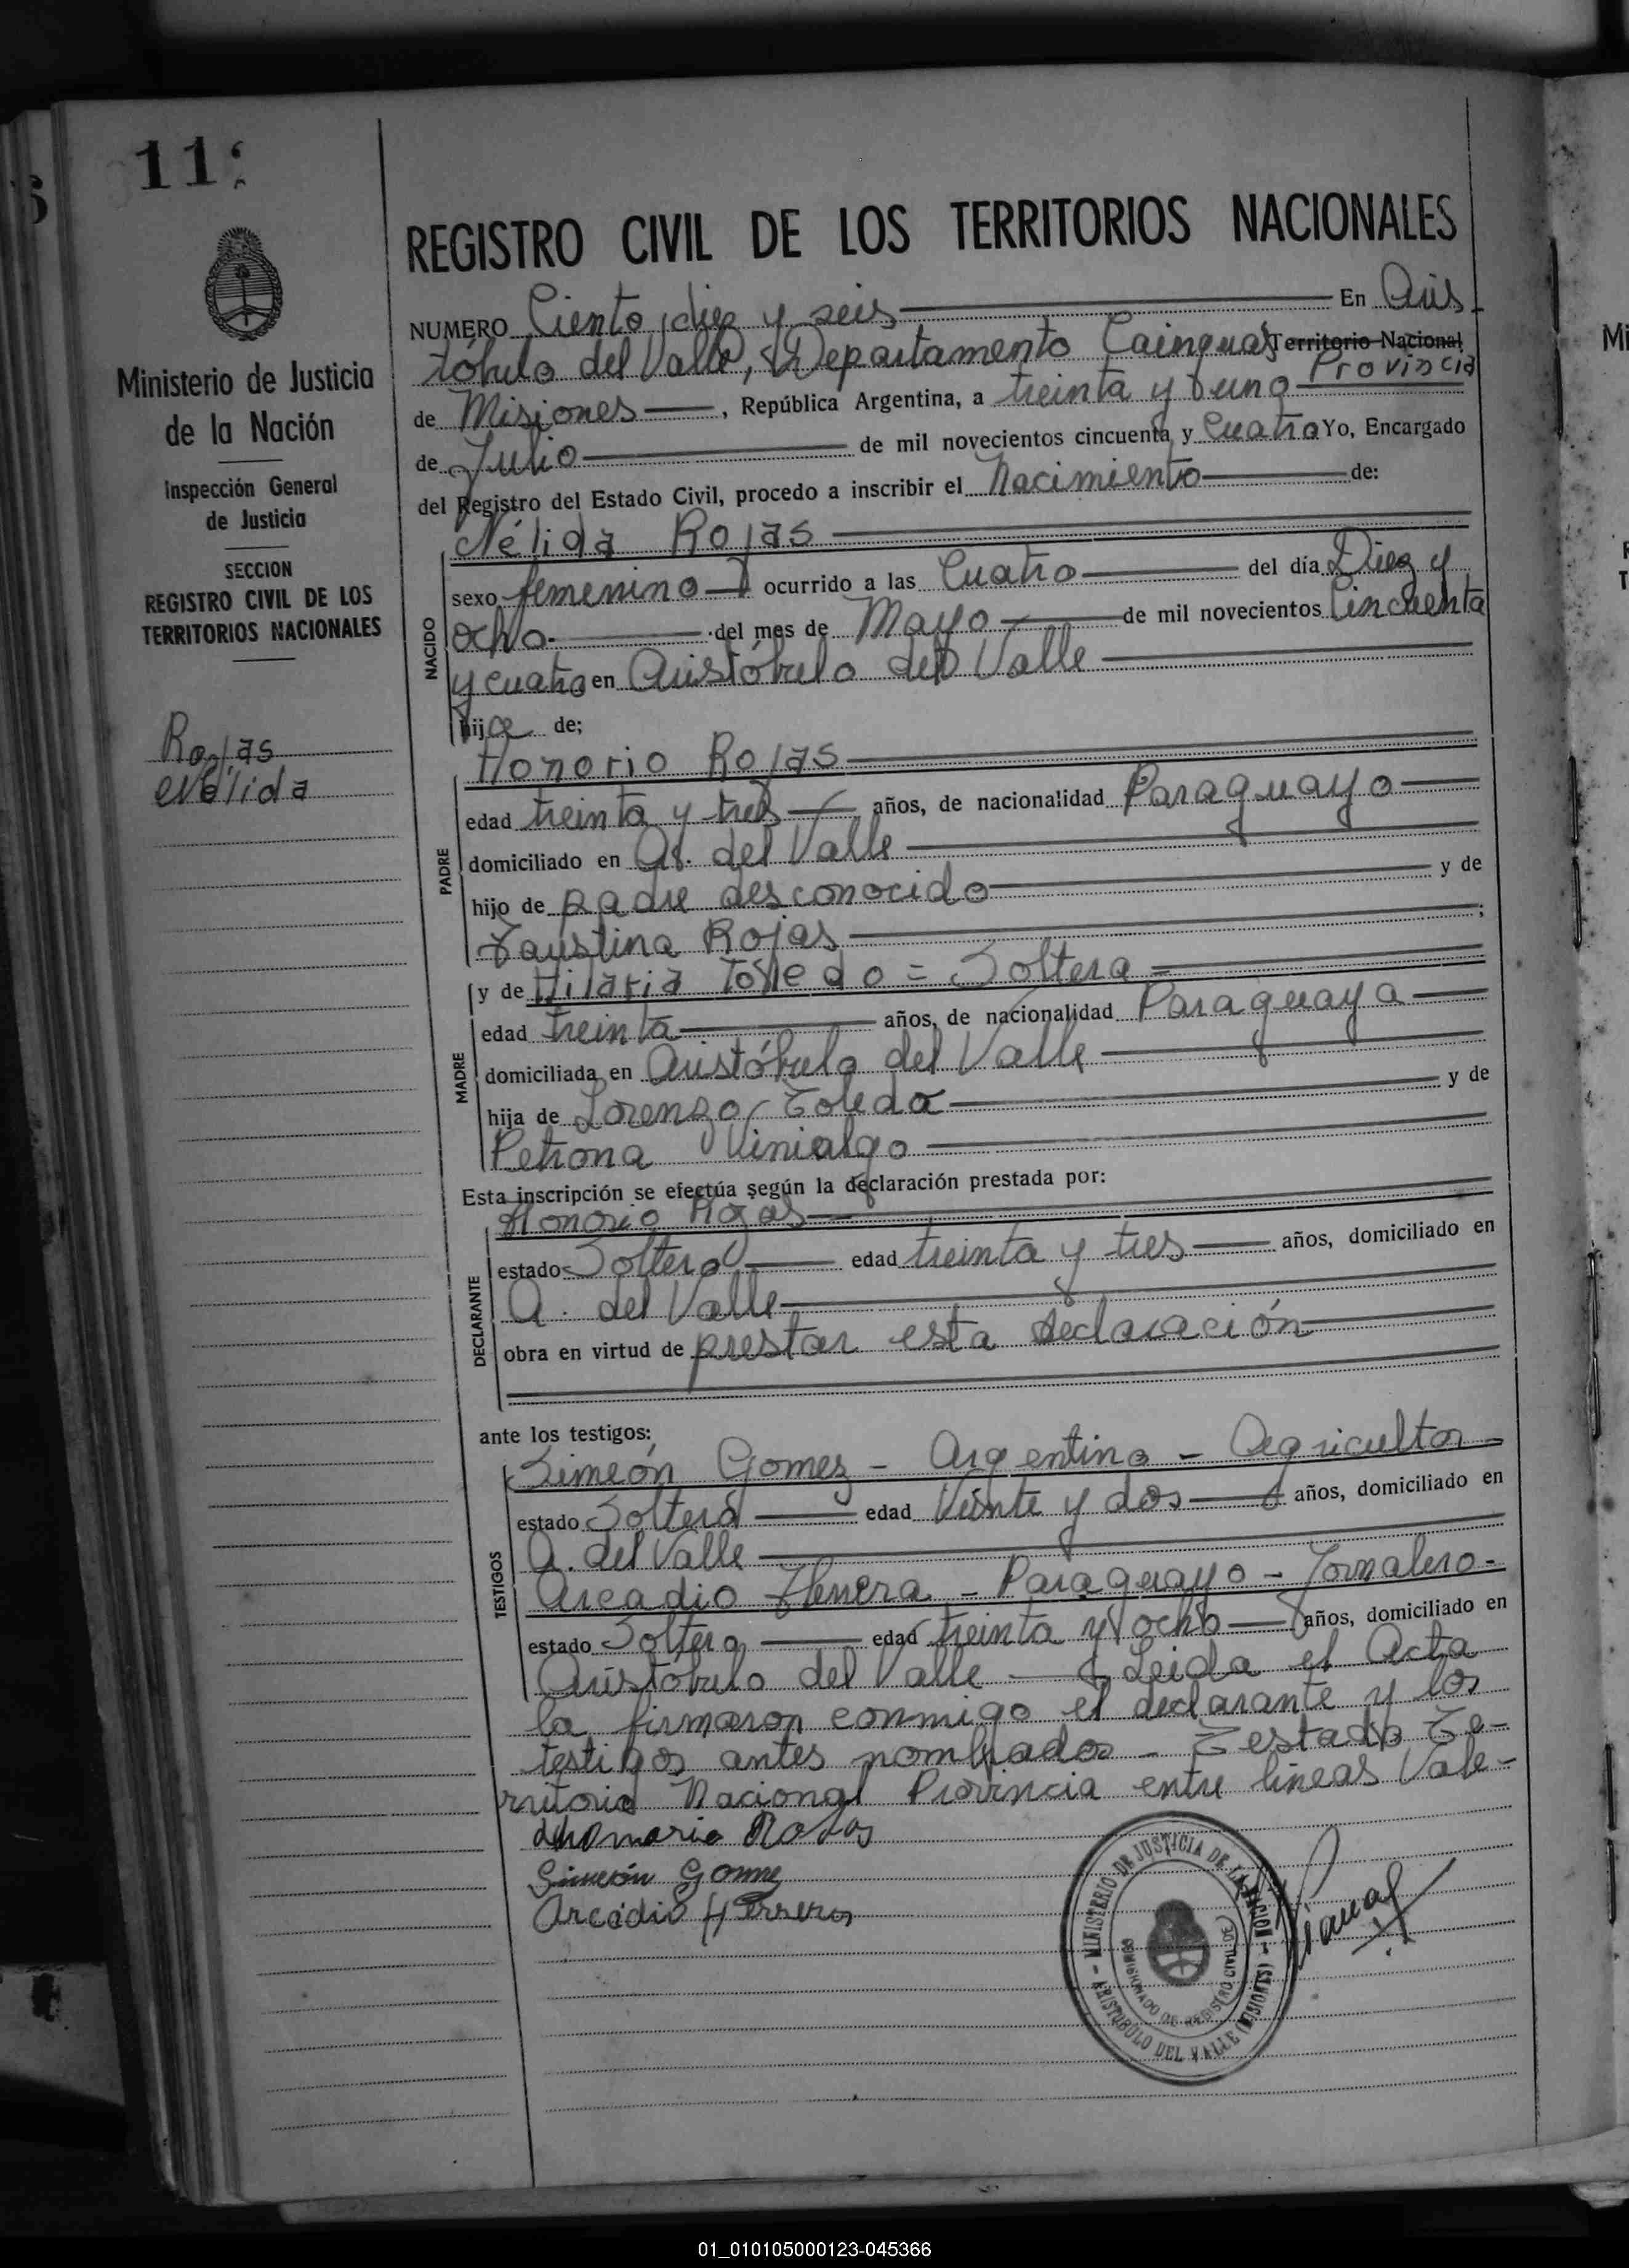 11
REGISTRO CIVIL DE LOS TERRITORIOS NACIONALES
Ministerio de Justicia
de la Nación
Inspección General
de Justicia
SECCION
REGISTRO CIVIL DE LOS
TERRITORIOS NACIONALES
Rojas
Nélida
NUMERO Ciento diez y seis En Aris
tóbulo del Valle, Departamento Cainguas Territorio Nacional
Provincia
de Misiones, República Argentina, a treinta y uno
de Julio de mil novecientos cincuenta y Cuatro Yo, Encargado
del Registro del Estado Civil, procedo a inscribir el Nacimiento de:
NACIDO
Nélida Rojas
sexo femenino ocurrido a las Cuatro del día Diez y
ocho del mes de Mayo de mil novecientos Cincuenta
y cuatro en Aristóbulo del Valle
hija de;
PADRE
Honorio Rojas
edad treinta y tres años, de nacionalidad Paraguayo
domiciliado en A. del Valle
hijo de padre desconocido y de
Faustina Rojas ;
MADRE
y de Hilaria Toledo = Soltera
edad treinta años, de nacionalidad Paraguaya
domiciliada en Aristóbulo del Valle
hija de Lorenzo Toledo y de
Petrona Vinialgo
Esta inscripción se efectúa según la declaración prestada por:
DECLARANTE
Honorio Rojas
estado Soltero edad treinta y tres años, domiciliado en
A. del Valle
obra en virtud de prestar esta declaración
ante los testigos:
TESTIGOS
Simeón Gomez - Argentino - Agricultor
estado Soltero edad Veinte y dos años, domiciliado en
A. del Valle
Arcadio Herrera - Paraguayo - Jornalero -
estado Soltero edad treinta y ocho años, domiciliado en
Aristóbulo del Valle - Leida el Acta
la firmaron conmigo el declarante y los
testigos antes nombrados - Testado Te-
rritorio Nacional Provincia entre lineas Vale -
Rojas
Simeón Gome
Arcadio Herrera
- MINISTERIO DE JUSTICIA DE LA NACION -
ARISTOBULO DEL VALLE (MISIONES)
ENCARGADO DE REGISTRO CIVIL DE
01_010105000123-045366